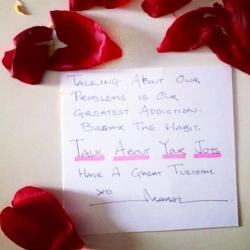 TALKING ABOUT OUR
PROBLEMS IS OUR
GREATEST ADDICTION.
BREAK THE HABIT.
TALK ABOUT YOUR JOYS
HAVE A GREAT TUESDAY
XO